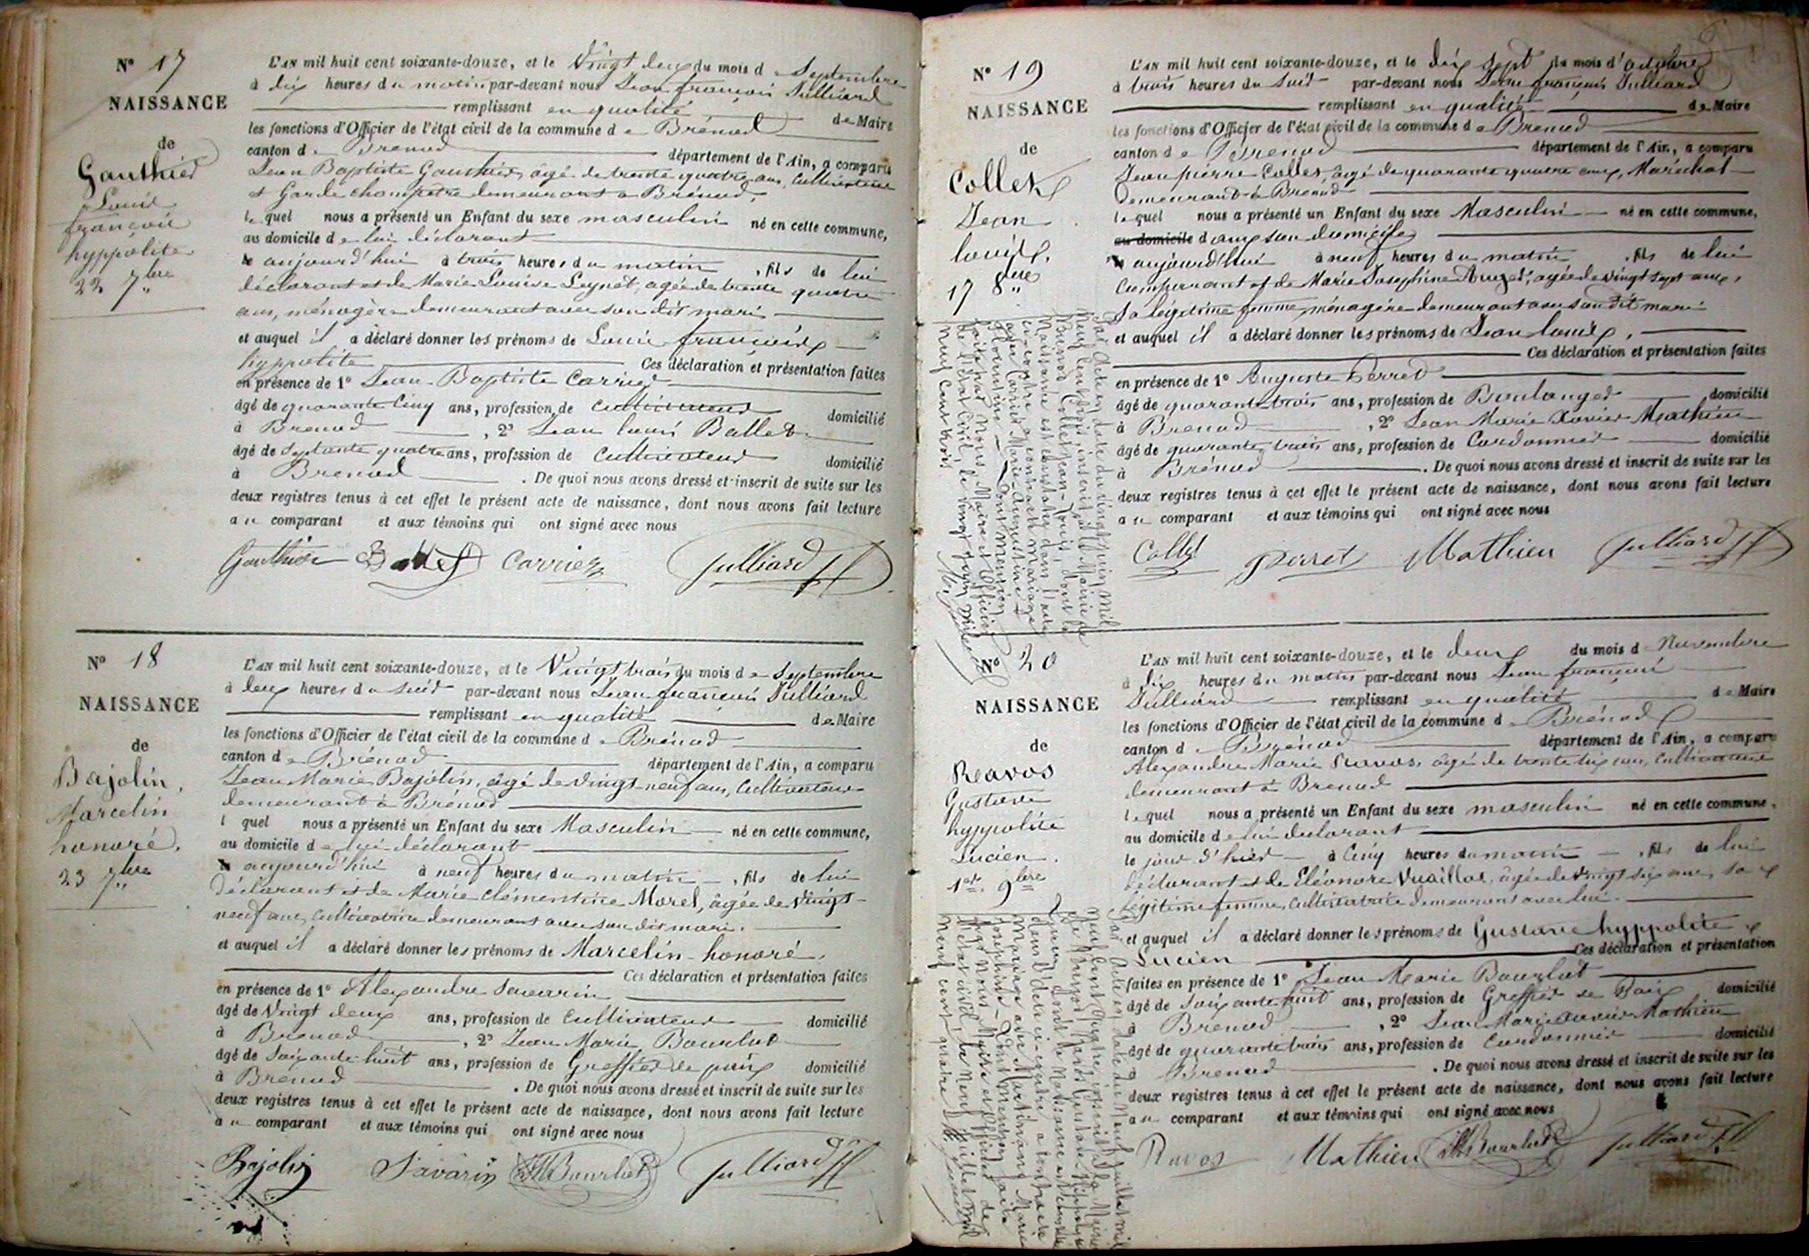 N° 17
NAISSANCE
de
Gauthier
Louis
françois
hyppolite
22 7bre
L'AN mil huit cent soixante-douze, et le Vingt deux du mois d e Septembre
à dix heures du matin par-devant nous Jean françois Julliard
remplissant en qualité de Maire
les fonctions d'Officier de l'état civil de la commune d e Brénod
canton d e Brenod département de l'Ain, a comparu
Jean Baptiste Gauthier, âgé de trente quatre ans, Cultivateur
et Garde champêtre demeurant à Brénod,
le quel nous a présenté un Enfant du sexe masculin né en cette commune,
au domicile d e lui déclarant
aujourd'hui à trois heures du matin, fils de lui
déclarant et de Marie Louise Leynet, agée de trente quatre
ans, ménagère demeurant avec son dit mari
et auquel il a déclaré donner les prénoms de Louis françois
hyppolite Ces déclaration et présentation faites
en présence de 1° Jean-Baptiste Carrier
âgé de quarante cinq ans, profession de cultivateur domicilié
à Brenod, 2° Jean louis Ballet
âgé de septante quatre ans, profession de Cultivateur domicilié
à Brenod. De quoi nous avons dressé et inscrit de suite sur les
deux registres tenus à cet effet le présent acte de naissance, dont nous avons fait lecture
au comparant et aux témoins qui ont signé avec nous
Gauthier Ballet Carrier Julliard
N° 18
NAISSANCE
de
Bajolin,
Marcelin
honoré.
23 7bre
L'AN mil huit cent soixante-douze, et le Vingt trois du mois d e Septembre
à deux heures du soir par-devant nous Jean françois Julliard
remplissant en qualité de Maire
les fonctions d'Officier de l'état civil de la commune d e Brénod
canton d e Brénod département de l'Ain, a comparu
Jean Marie Bajolin, âgé de vingt neuf ans, Cultivateur
demeurant à Brénod
l quel nous a présenté un Enfant du sexe Masculin né en cette commune,
au domicile d e lui déclarant
aujourd'hui à neuf heures du matin, fils de lui
déclarant et de Marie Clémentine Morel, âgée de vingt-
neuf ans, cultivatrice demeurant avec son dit mari.
et auquel il a déclaré donner les prénoms de Marcelin-honoré.
Ces déclaration et présentation faites
en présence de 1° Alexandre Savarin
âgé de Vingt deux ans, profession de Cultivateur domicilié
à Brenod, 2° Jean Marie Bourlut
âgé de soixante huit ans, profession de Greffier de paix domicilié
à Brenod. De quoi nous avons dressé et inscrit de suite sur les
deux registres tenus à cet effet le présent acte de naissance, dont nous avons fait lecture
au comparant et aux témoins qui ont signé avec nous
Bajolin Savarin Bourlut Julliard
N° 19
NAISSANCE
de
Collet
Jean
louis.
17 8bre
L'AN mil huit cent soixante-douze, et le dix sept du mois d'octobre
à trois heures du soir par-devant nous Jean françois Julliard
remplissant en qualité de Maire
les fonctions d'Officier de l'état civil de la commune d e Brenod
canton d e Brenod département de l'Ain, a comparu
Jean pierre Collet, âgé de quarante quatre ans, Maréchal
demeurant à Brenod
le quel nous a présenté un Enfant du sexe Masculin né en cette commune,
au domicile dans son domicile
aujourd'hui à neuf heures du matin, fils de lui
Comparant et de Marie Josephine Auger, âgée de vingt sept ans,
sa légitime femme, ménagère demeurant avec son dit mari
et auquel il a déclaré donner les prénoms de Jean louis,
Ces déclaration et présentation faites
en présence de 1° Auguste Perret
âgé de quarante trois ans, profession de Boulanger domicilié
à Brenod, 2° Jean Marie Xavier Mathieu
âgé de quarante trois ans, profession de Cordonnier domicilié
à Brénod. De quoi nous avons dressé et inscrit de suite sur les
deux registres tenus à cet effet le présent acte de naissance, dont nous avons fait lecture
au comparant et aux témoins qui ont signé avec nous
Collet Perret Mathieu Julliard
Par Acte en date du vingt juin mil
neuf cent trois, inscrit à la Mairie de
Brenod, Collet Jean-Louis, dont la
Naissance est constatée dans l'acte
ci-contre, a contracté mariage
avec Carrier Marie-Augustine
Dont mention
faite par nous, Maire et Officier
de l'Etat Civil, le vingt juin mil
neuf cent trois.
N° 20
NAISSANCE
de
Ravos
Gustave
hyppolite
Lucien.
1er 9bre
L'AN mil huit cent soixante-douze, et le deux du mois d Novembre
à dix heures du matin par-devant nous Jean françois
Julliard remplissant en qualité de Maire
les fonctions d'Officier de l'état civil de la commune d e Brénod
canton d e Brénod département de l'Ain, a comparu
Alexandre Marie Ravos, âgé de trente six ans, cultivateur
demeurant à Brenod
le quel nous a présenté un Enfant du sexe masculin né en cette commune,
au domicile d e lui déclarant
le jour d'hier à Cinq heures du matin, fils de lui
déclarant et de Eléonore Vuaillat, âgée de vingt six ans, sa
légitime femme, cultivatrice demeurant avec lui.
et auquel il a déclaré donner les prénoms de Gustave hyppolite
Lucien Ces déclaration et présentation
faites en présence de 1° Jean Marie Bourlut
âgé de soixante huit ans, profession de Greffier de Paix domicilié
à Brenod, 2° Jean Marie Xavier Mathieu
âgé de quarante trois ans, profession de Cordonnier domicilié
à Brenod. De quoi nous avons dressé et inscrit de suite sur les
deux registres tenus à cet effet le présent acte de naissance, dont nous avons fait lecture
au comparant et aux témoins qui ont signé avec nous
Ravos Mathieu Bourlut Julliard
Par Acte en date du neuf juillet mil
neuf cent quatre, inscrit à la Mairie
de Brenod, Ravos Gustave Hippolyte
Lucien, dont la Naissance est constatée
dans l'acte ci-contre, a contracté
mariage avec Martinand Marie
Joséphine. Dont mention faite
par nous, Maire et Officier de
l'Etat civil, le neuf juillet mil
neuf cent quatre.